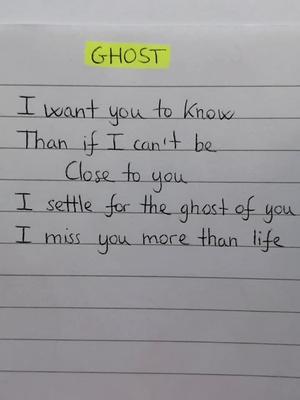 GHOST
I want you to know
Than if I can't be
Close to you
I settle for the ghost of you
I miss you more than life